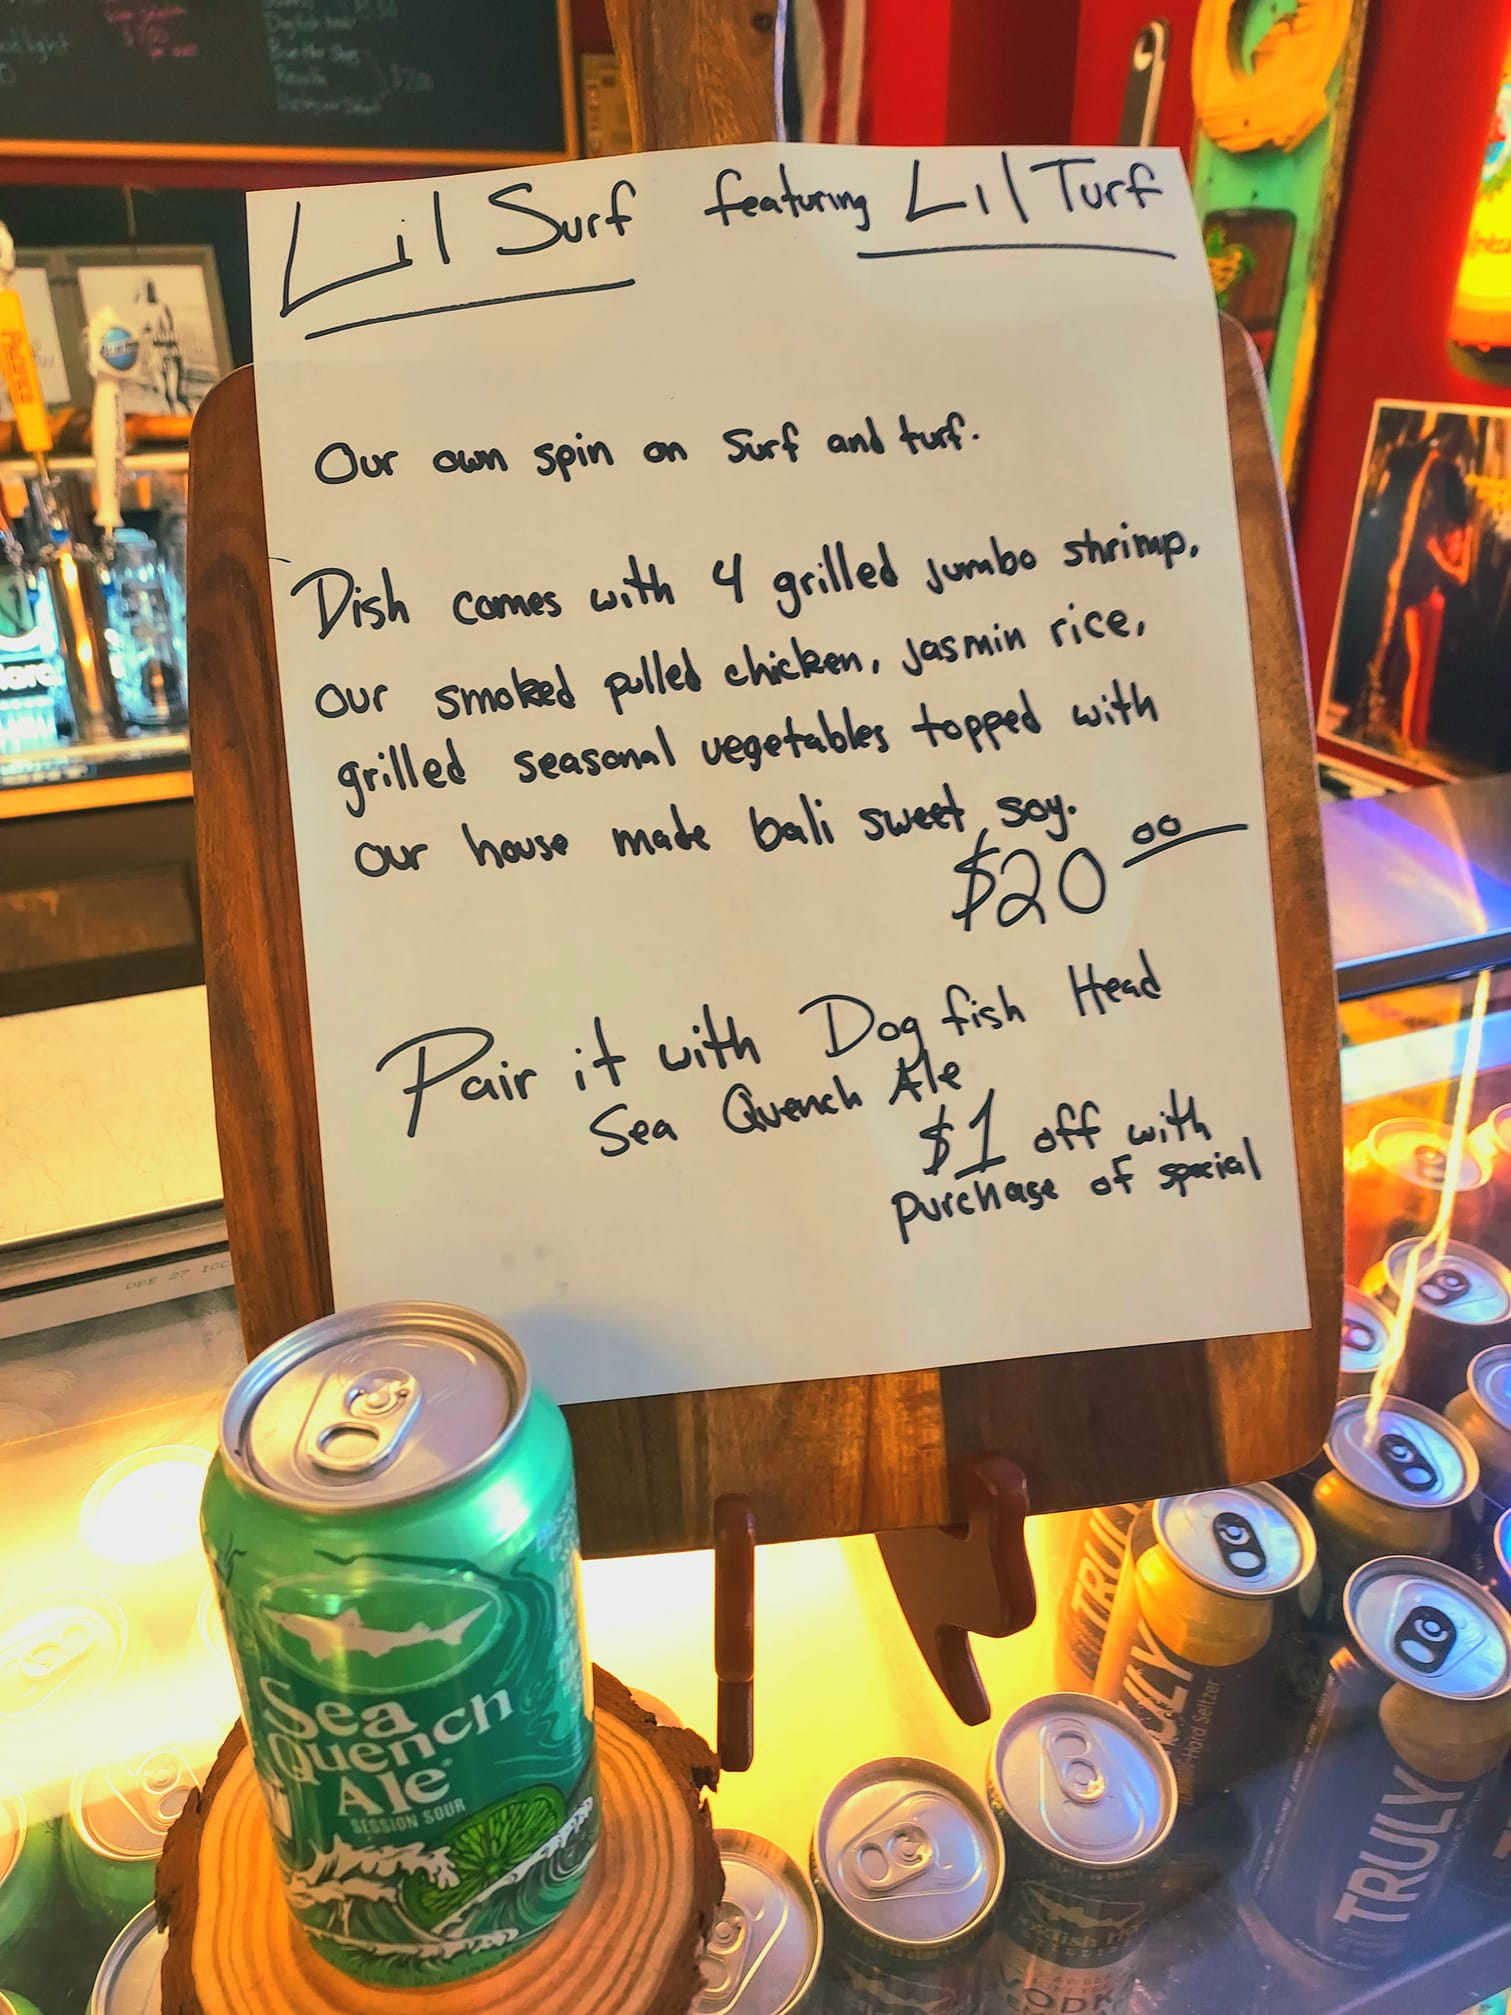 Lil Surf featuring Lil Turf
Our own spin on Surf and turf.
Dish comes with 4 grilled jumbo shrimp,
our smoked pulled chicken, jasmin rice,
grilled seasonal vegetables topped with
our house made bali sweet soy.
$20 00
Pair it with Dogfish Head
Sea Quench Ale
$1 off with
purchase of special
Sea
Quench
Ale
SESSION SOUR
TRULY
Hard Seltzer
TRULY